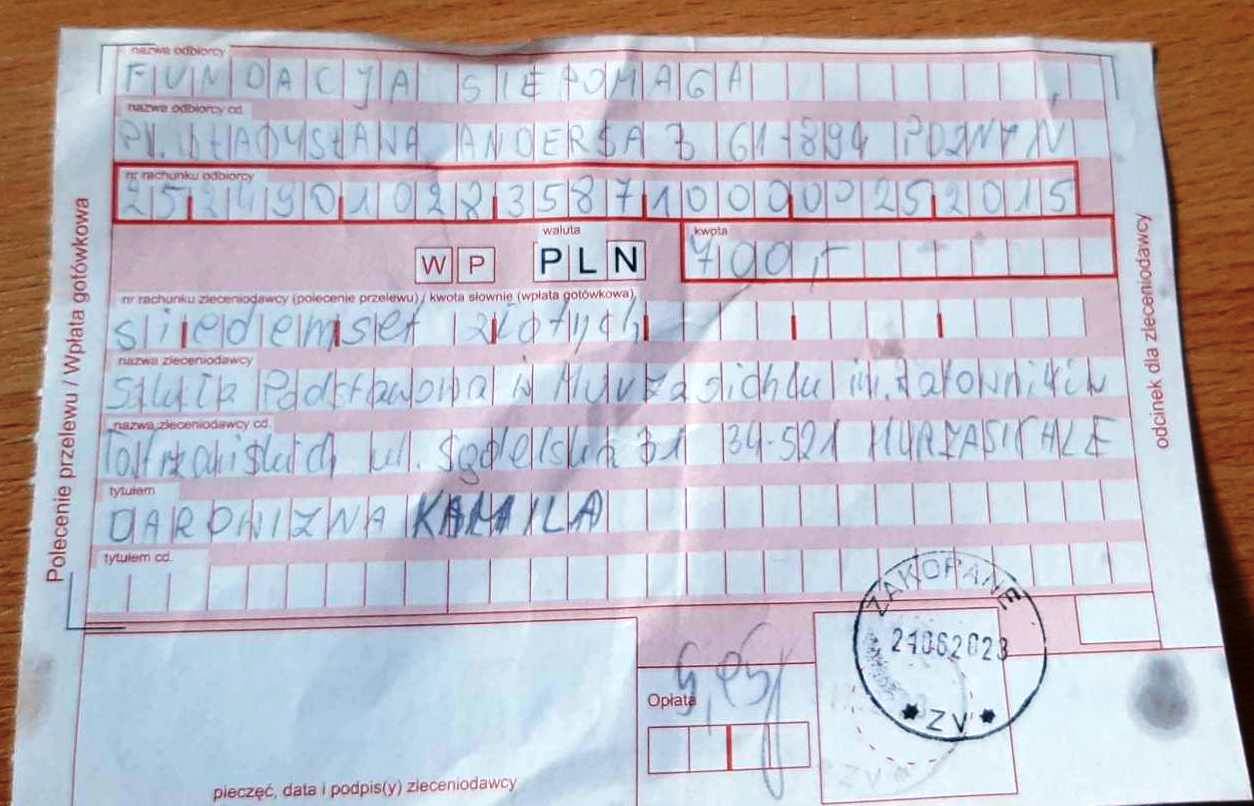 nazwa odbiorcy
FUNDACJA SIEPOMAGA
nazwa odbiorcy cd.
PL. WŁADYSŁAWA ANDERSA 3 61-894 POZNAN
nr rachunku odbiorcy
25 2490 1028 3587 1000 0025 2015
waluta
kwota
W P PLN 700,-
nr rachunku zleceniodawcy (polecenie przelewu) / kwota słownie (wpłata gotówkowa)
siedemset złotych
nazwa zleceniodawcy
Szkoła Podstawowa w Murzasichlu im. Ratowników
nazwa zleceniodawcy cd.
Tatrzańskich ul. Sądelska 31 34-521 MURZASICHLE
tytułem
DAROWIZNA KAMILA
tytułem cd.
Polecenie przelewu / Wpłata gotówkowa
odcinek dla zleceniodawcy
ZAKOPANE
ZV
Opłata
pieczęć, data i podpis(y) zleceniodawcy